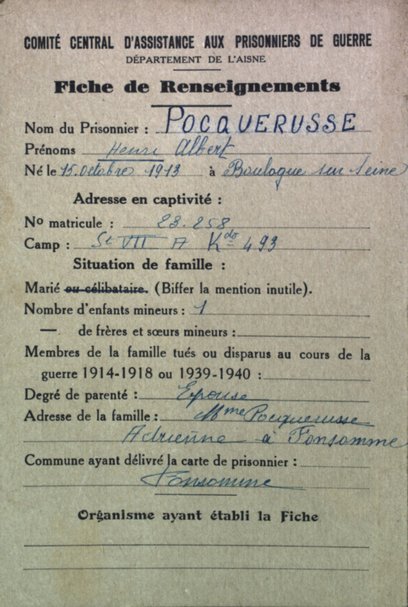 COMITÉ CENTRAL D'ASSISTANCE AUX PRISONNIERS DE GUERRE
DÉPARTEMENT DE L'AISNE
Fiche de Renseignements
Nom du Prisonnier : POCQUERUSSE
Prénoms Henri Albert
Né le 15 octobre 1913 à Boulogne sur Seine
Adresse en captivité :
No matricule : 23.258
Camp : St VII A Kdo 493
Situation de famille :
Marié ou célibataire. (Biffer la mention inutile).
Nombre d'enfants mineurs : 1
— de frères et sœurs mineurs :
Membres de la famille tués ou disparus au cours de la
guerre 1914-1918 ou 1939-1940 :
Degré de parenté : Epouse
Adresse de la famille : Mme Pocquerusse
Adrienne à Fonsomme
Commune ayant délivré la carte de prisonnier :
Fonsomme
Organisme ayant établi la Fiche